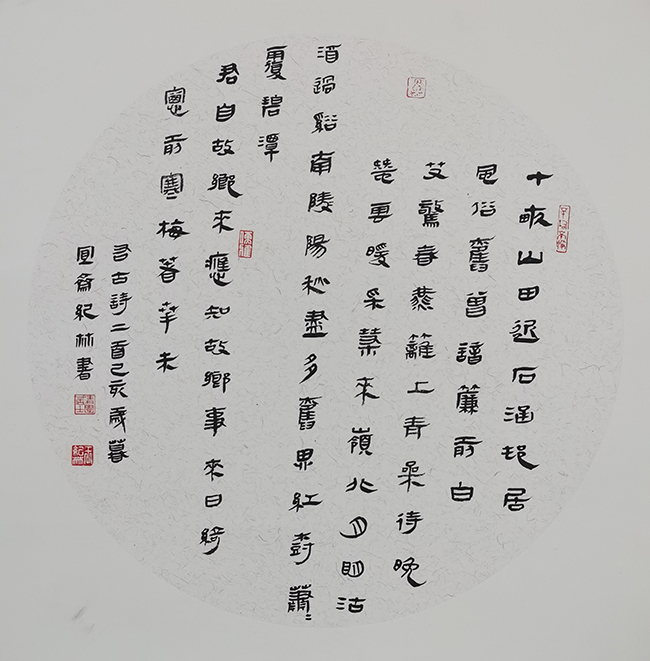 十畝山田近石涵邨居
風俗舊曾諳簾前白
艾驚春燕籬上青桑待晚
蚕雲暖采茶來嶺北月明沽
酒過谿南陵陽秋盡多舊思紅樹蕭〻
覆碧潭
君自故鄉來應知故鄉事來日綺
窗前寒梅著華未
右古詩二首己亥歲暮
宜齋紀林書